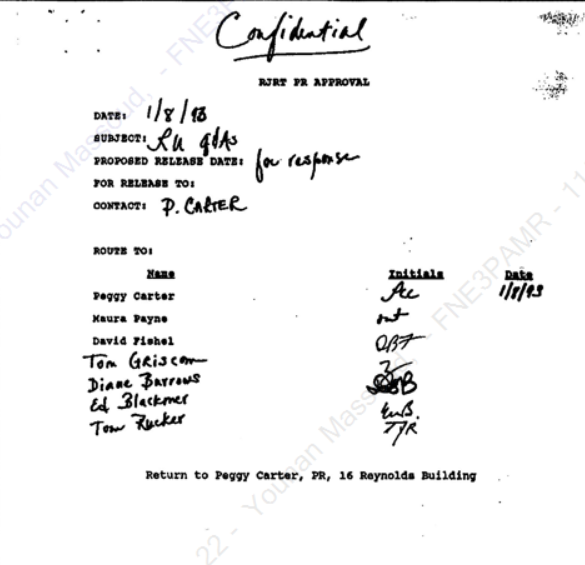 Confidential
RJRT PR APPROVAL
DATE: 1/8/93
SUBJECT: RN Q&As
PROPOSED RELEASE DATE: for response
FOR RELEASE TO:
CONTACT: P. CARTER
ROUTE TO:
Name Initials Date
Peggy Carter 1/8/93
Maura Payne
David Fishel DBF
Tom Griscom
Diane Barrows DSB
Ed Blackmer EWB.
Tom Rucker TPR
Return to Peggy Carter, PR, 16 Reynolds Building
22 - Younan Massoud, - FNE3PAMR - 11